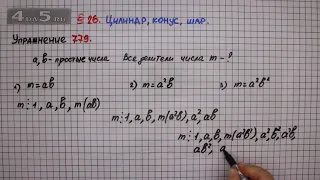 4 ДЛЯ 5.ru
§ 26. Цилиндр, конус, шар.
Упражнение 779.
a, b - простые числа Все делители числа m - ?
1) m = ab 2) m = a²b 3) m = a²b²
m : 1, a, b, m (ab)
m : 1, a, b, m (a²b), a², ab
m : 1, a, b, m (a²b²), a², b², a²b,
ab², a